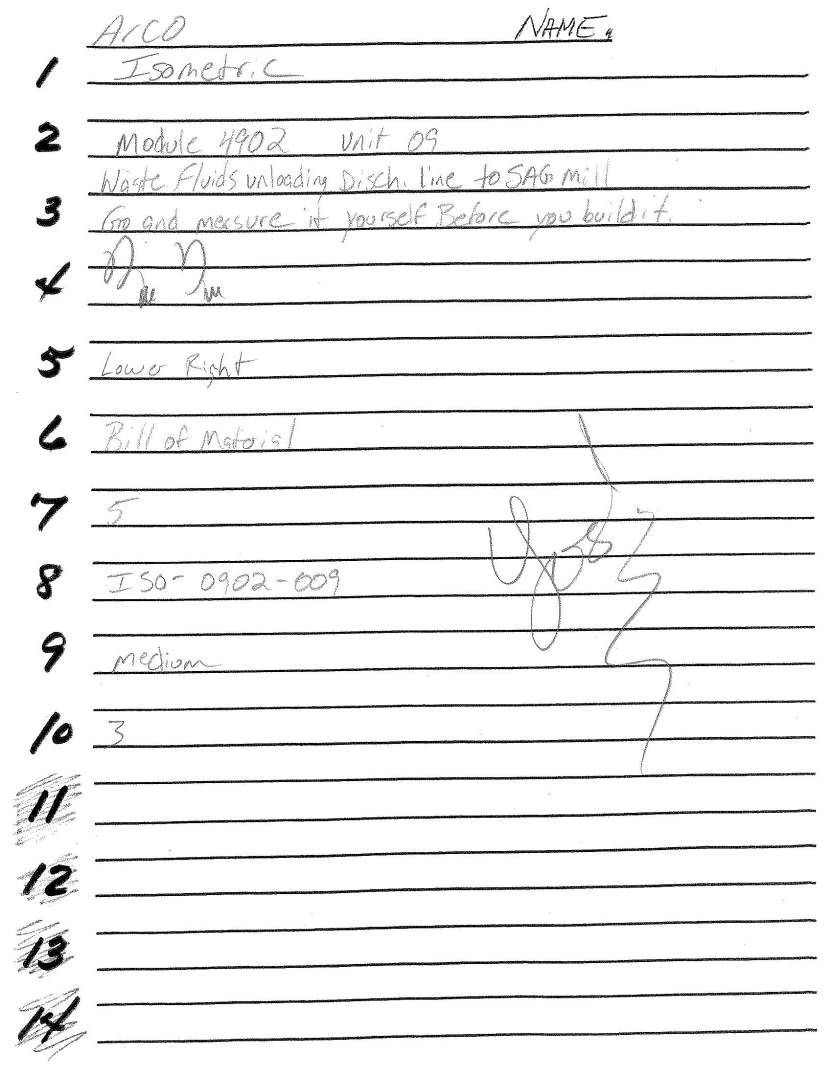 ARCO NAME.
1 Isometric
2 Module 4902 Unit 09
Waste Fluids unloading Disch. line to SAG mill
3 Go and measure it yourself Before you build it.
4
5 Lower Right
6 Bill of Material
7 5
8 ISO-0902-009
9 medium
10 3
11
12
13
14